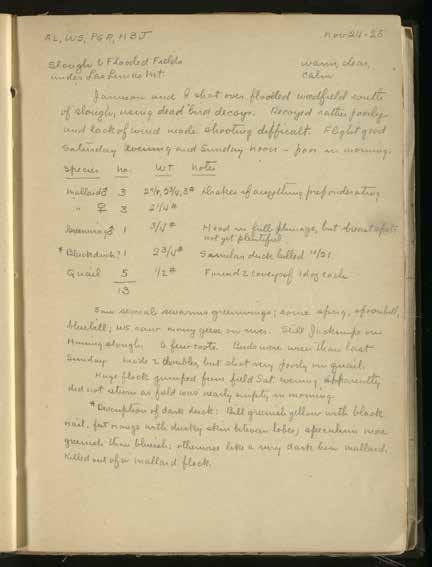 AL, WS, PGR, HBJ Nov 24-25
Slough & Flooded Fields warm, clear,
under Los Lunas Mt. calm.
Jamison and I shot over flooded weedfield south
of slough, using dead bird decoys. Decoyed rather poorly
and lack of wind made shooting difficult. Flight good
Saturday evening and Sunday noon - poor in morning.
Species No. Wt. Notes
Mallard ♂ 3 2 3/4, 3# Drakes if anything preponderating
" ♀ 3 2 1/4#
Greenwing ♂ 1 3/4# Head in full plumage, but breast spots
not yet plentiful
* Blackduck? 1 2 3/4# Similar duck killed 10/21.
Quail 5 1/2# Found 2 coveys of 1 doz each
13
Saw several swarms greenwings; some sprig, spoonbill,
bluebill; WS saw many geese on river. Still Jacksnipe on
slough. A few coots. Birds were wilder than last
Sunday. Made 2 doubles, but shot very poorly on quail.
Huge flock jumped from field Sat. evening apparently
did not return as field was nearly empty in morning.
* Description of dark duck: Bill greenish yellow with black
nail, feet orange with dusky skin between lobes; speculum more
greenish than blueish; otherwise like a very dark hen mallard.
Killed out of a mallard flock.